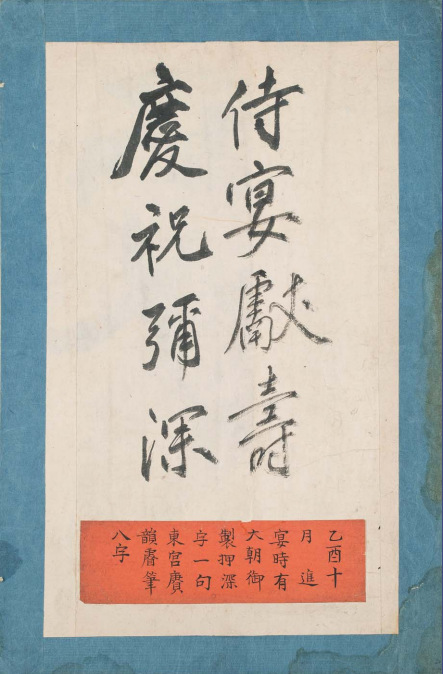 侍宴獻壽
慶祝彌深
乙酉十
月進
宴時有
大朝御
製押深
字一句
東宮賡
韻睿筆
八字